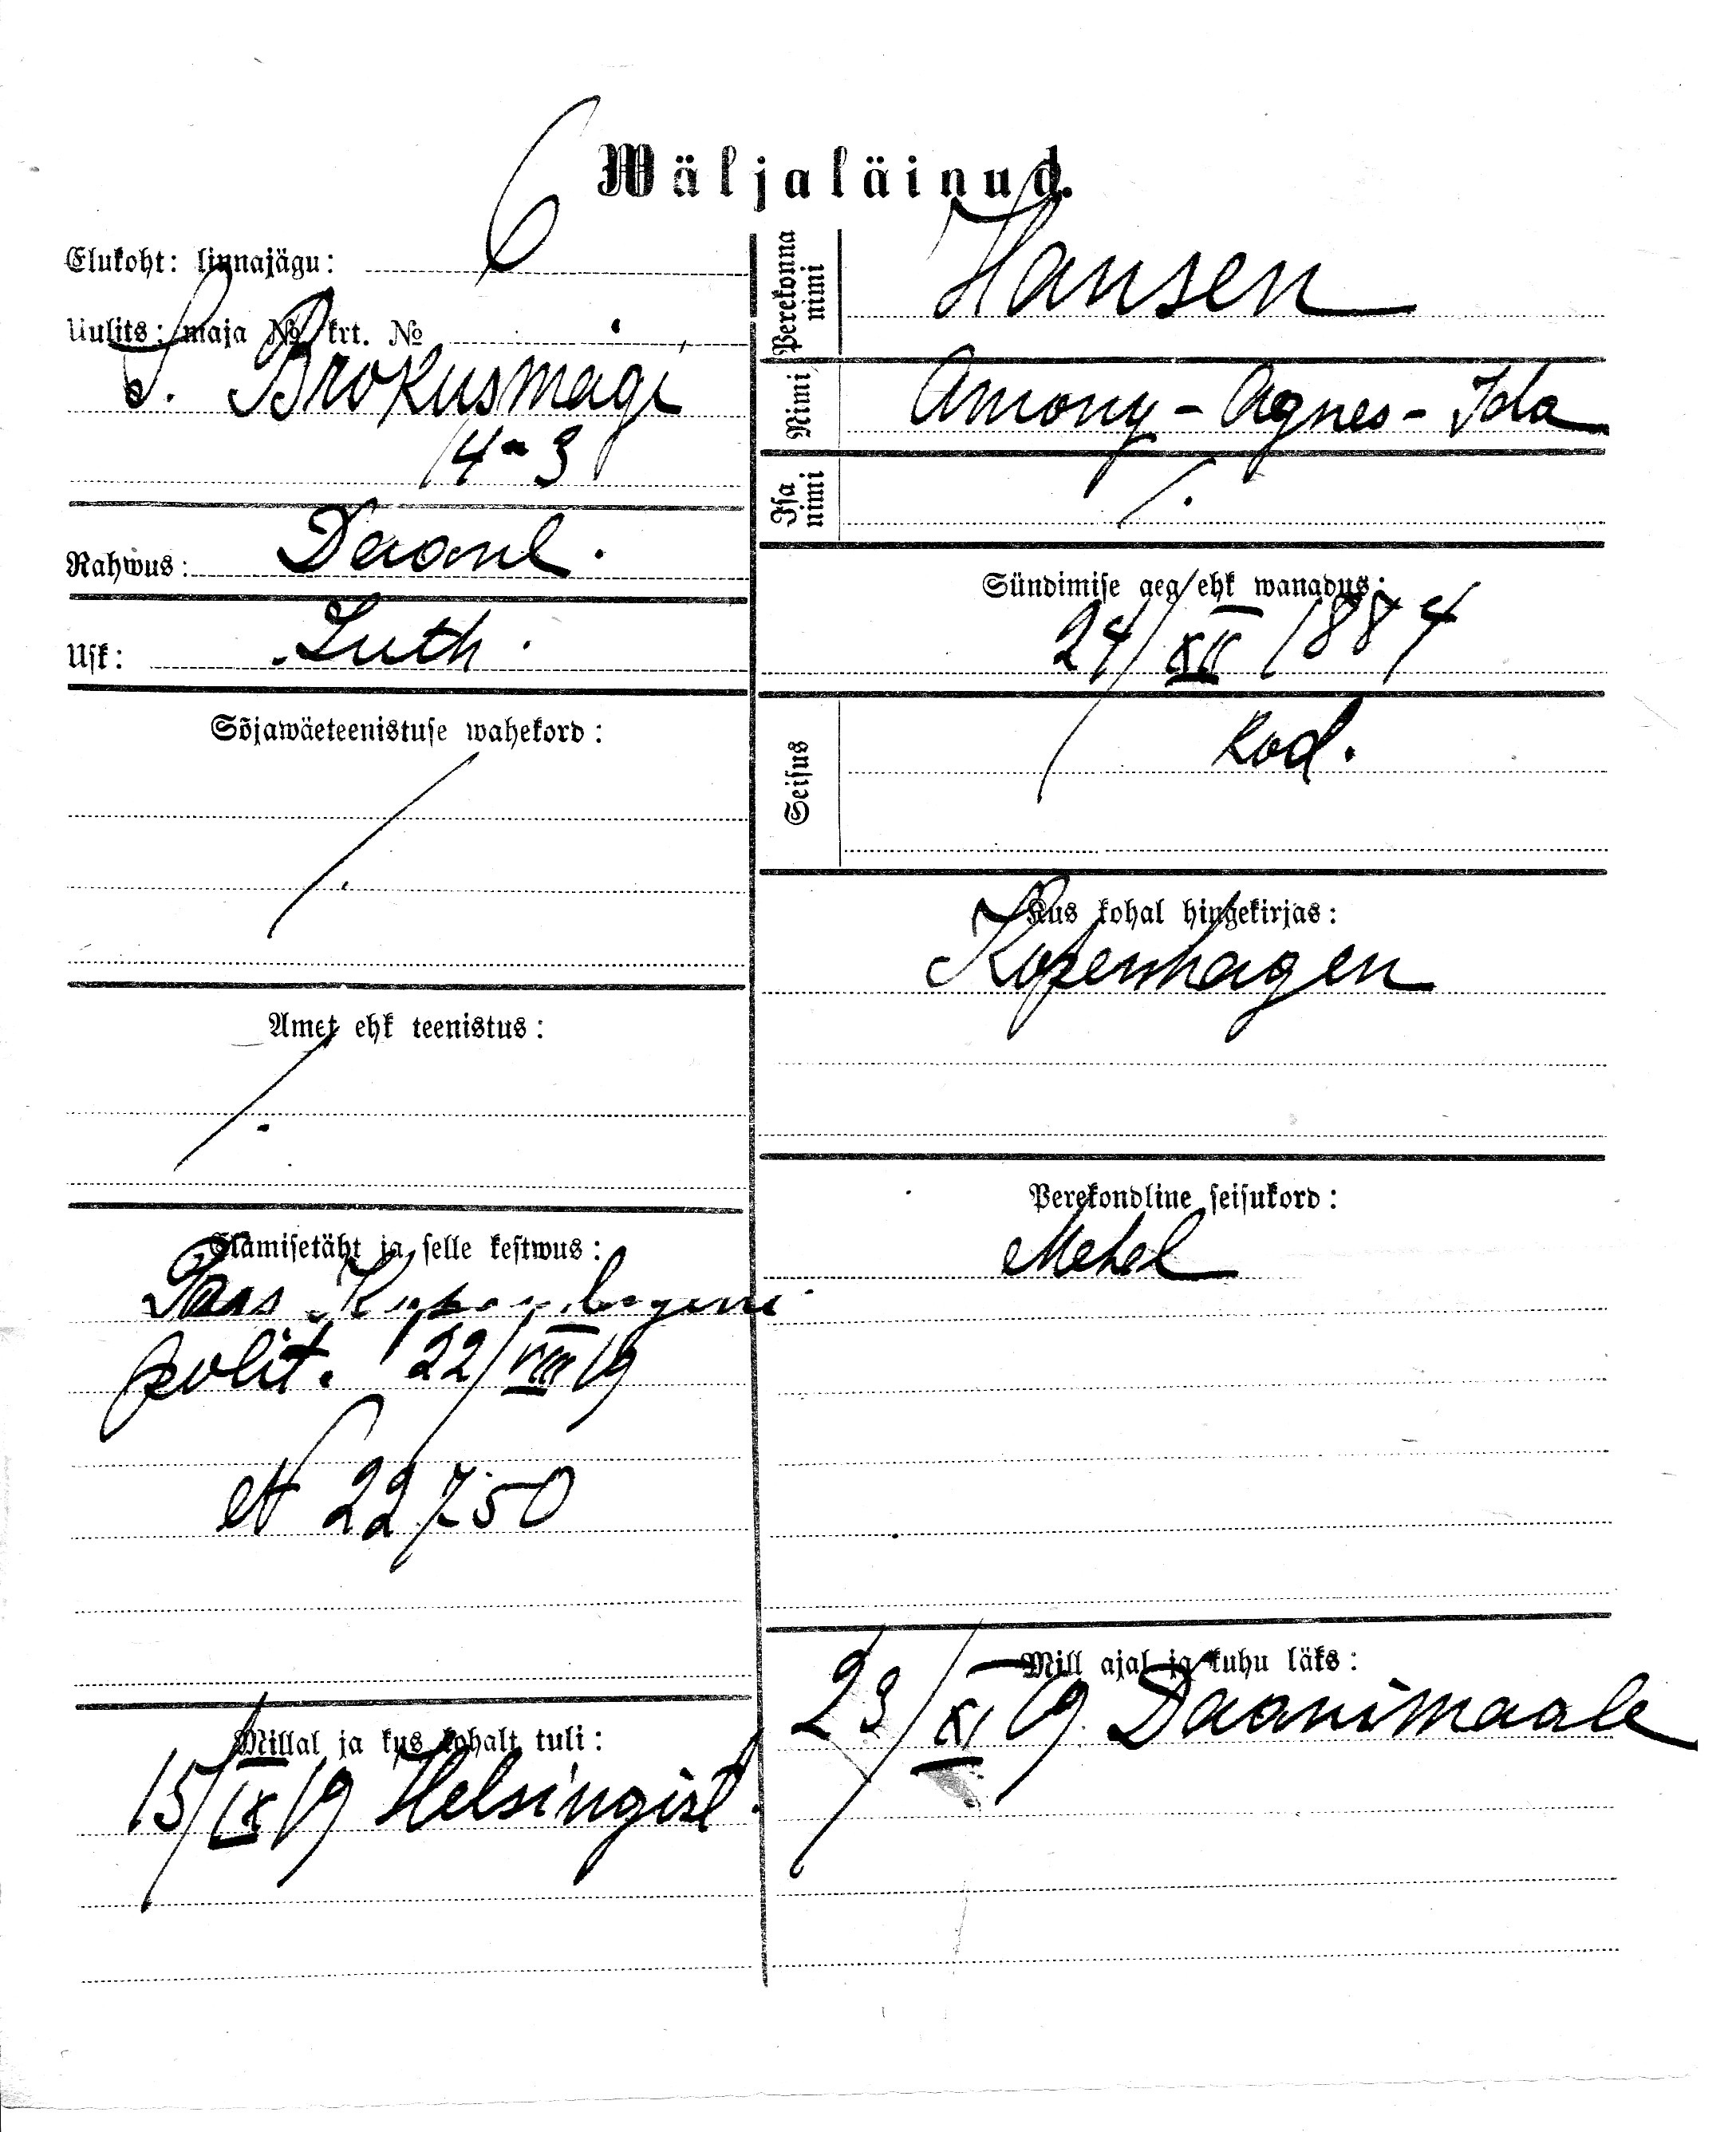 Wäljaläinud.
Elukoht: linnajägu: 6
Uulits: maja № krt. №
S. Brokusmägi
14-3
Rahwus: Daanl.
Usk: Luth.
Sõjawäeteenistuse wahekord:
/.
Amet ehk teenistus:
/.
Elamisetäht ja selle kestwus:
Pass Kopenhageni
polit. 22/VIII 19
N 22750
Millal ja kus kohalt tuli:
15/IX 19 Helsingist.
Perekonna nimi
Hansen
Nimi
Amony-Agnes-Ida
Isa nimi
/.
Sündimise aeg ehk wanadus:
24/XII 1884
Seisus
kod.
Kus kohal hingekirjas:
Kopenhagen
Perekondline seisukord:
Mehel
Mill ajal ja kuhu läks:
23/XI 19. Daanimaale